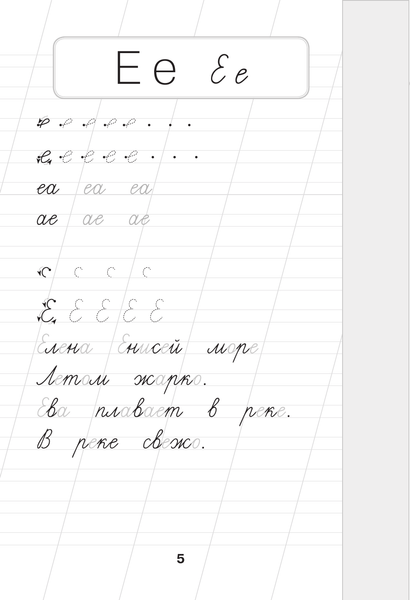 Е е Е е
е е е е е
е е е е е
еа еа еа
ае ае ае
Е Е Е Е Е
Елена Енисей море
Летом жарко.
Ева плавает в реке.
В реке свежо.
5